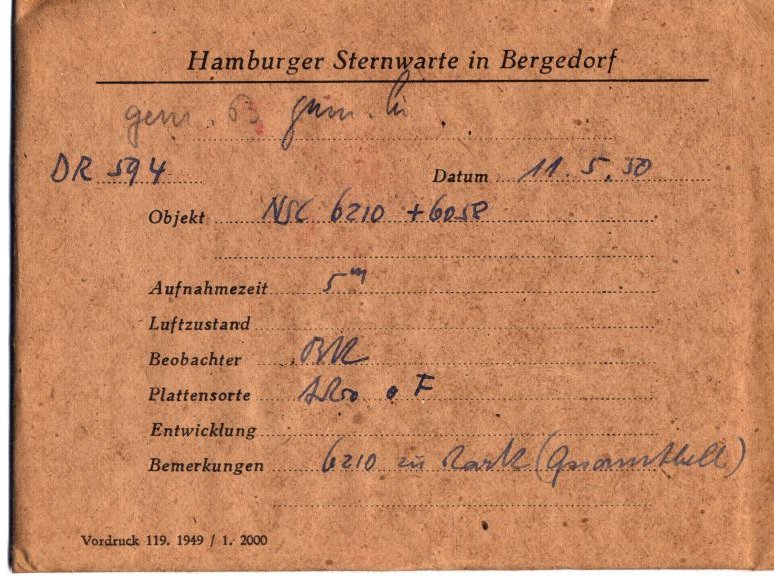 Hamburger Sternwarte in Bergedorf
gem. B gem. hi
DR 594 Datum 11.5.50
Objekt NGC 6210 + 6058
Aufnahmezeit 5m
Luftzustand
Beobachter
Plattensorte F
Entwicklung
Bemerkungen 6210 zu stark (Gesamthell)
Vordruck 119. 1949 / 1. 2000